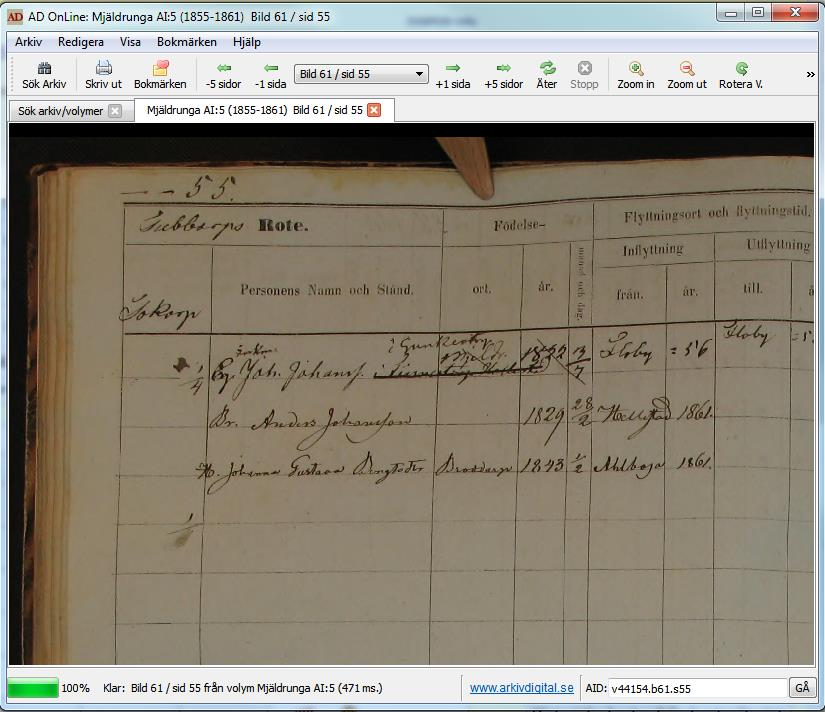 AD OnLine: Mjäldrunga AI:5 (1855-1861) Bild 61 / sid 55
Arkiv Redigera Visa Bokmärken Hjälp
Sök Arkiv Skriv ut Bokmärken -5 sidor -1 sida Bild 61 / sid 55 +1 sida +5 sidor Åter Stopp Zoom in Zoom ut Rotera V. »
Sök arkiv/volymer Mjäldrunga AI:5 (1855-1861) Bild 61 / sid 55
- - 55.
Rote. Födelse- Flyttningsort och flyttningstid.
Inflyttning Utflyttning
Personens Namn och Stånd. ort. år. månad och dag. från. år. till.
Sokorp
1/4 Eg. Joh. Johanss. 1822 13/7 Floby = 56 Floby
Br. Anders Johansson 1829 28/2 Hællestad 1861.
H. Johanna Gustava Bengtsdter Broddarp 1843 1/2 Ahlboga 1861.
100% Klar: Bild 61 / sid 55 från volym Mjäldrunga AI:5 (471 ms.) www.arkivdigital.se AID: v44154.b61.s55 GÅ